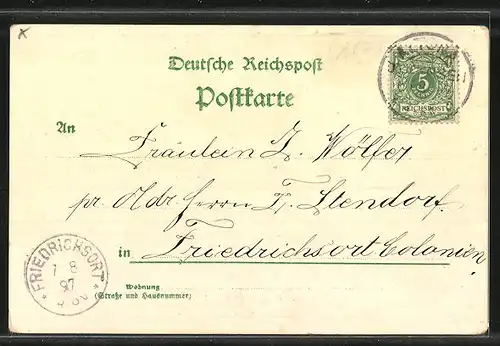 Deutsche Reichspost
Postkarte
5
REICHSPOST
An
Fräulein J. Wölfer
pr. Adr. Herrn F. Stendorf
in Friedrichsort Colonien
FRIEDRICHSORT
8
97
Wohnung
(Straße und Hausnummer)